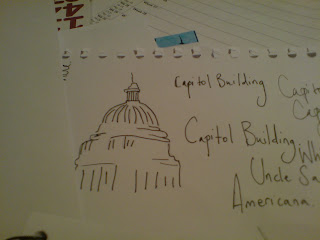 Capitol Building
Capitol Building
Uncle Sa
Americana.